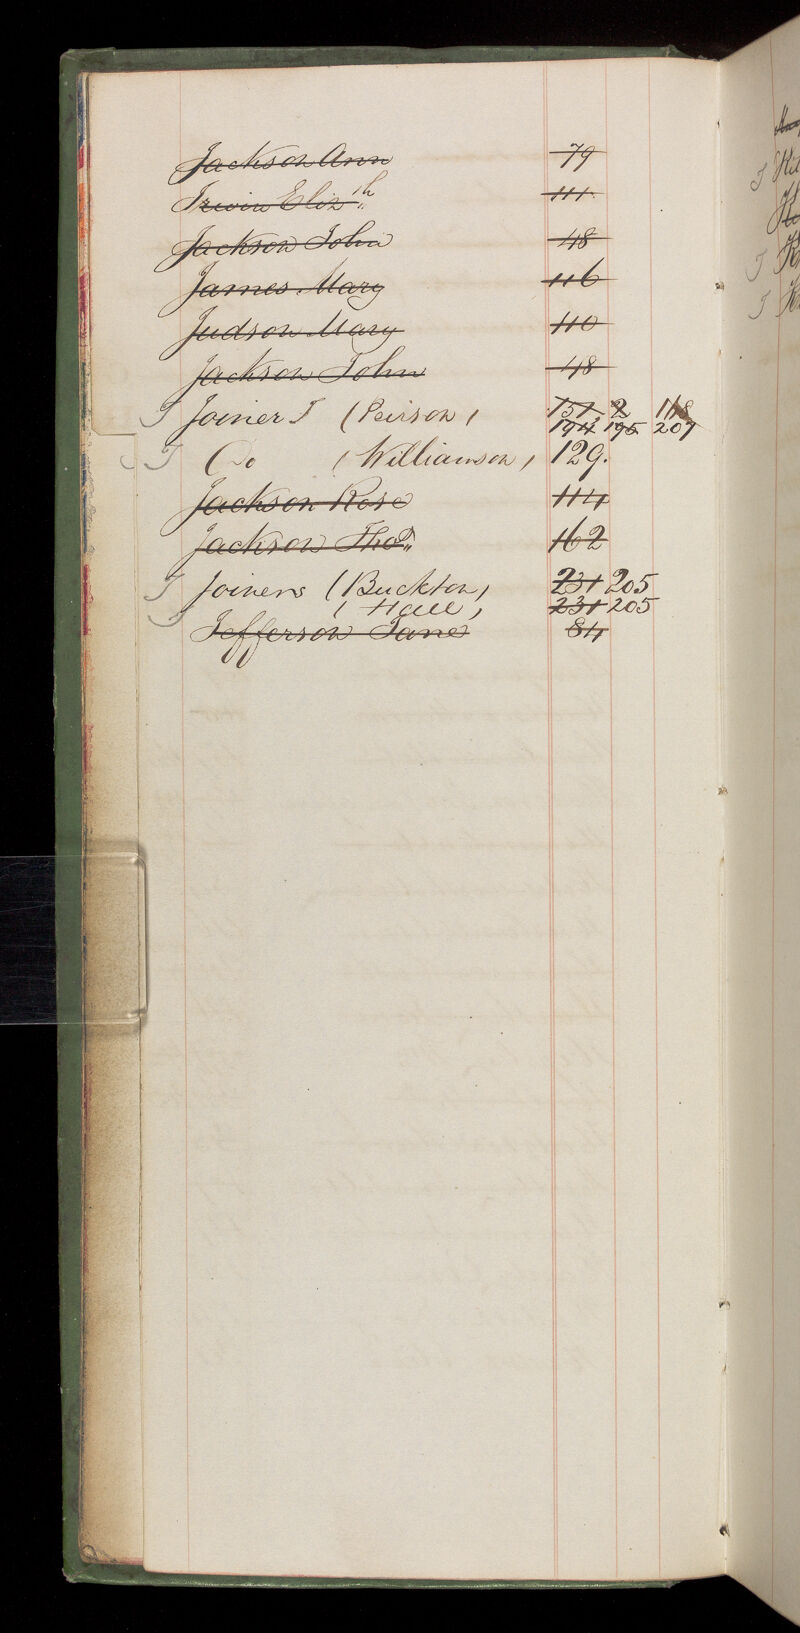 Jackson Ann 79
Irwin Eliz th 111
Jackson John 48
James Mary 116
Judson Mary 110
Jackson John 48
J Joiner J (Peirson) 151 2 118
194 195 207
J Do (Williamson) 129.
Jackson Rose 114
Jackson Thos 162
J Joiners (Buckton) 231 205
J (Hall) 231 205
Jefferson Jane 84